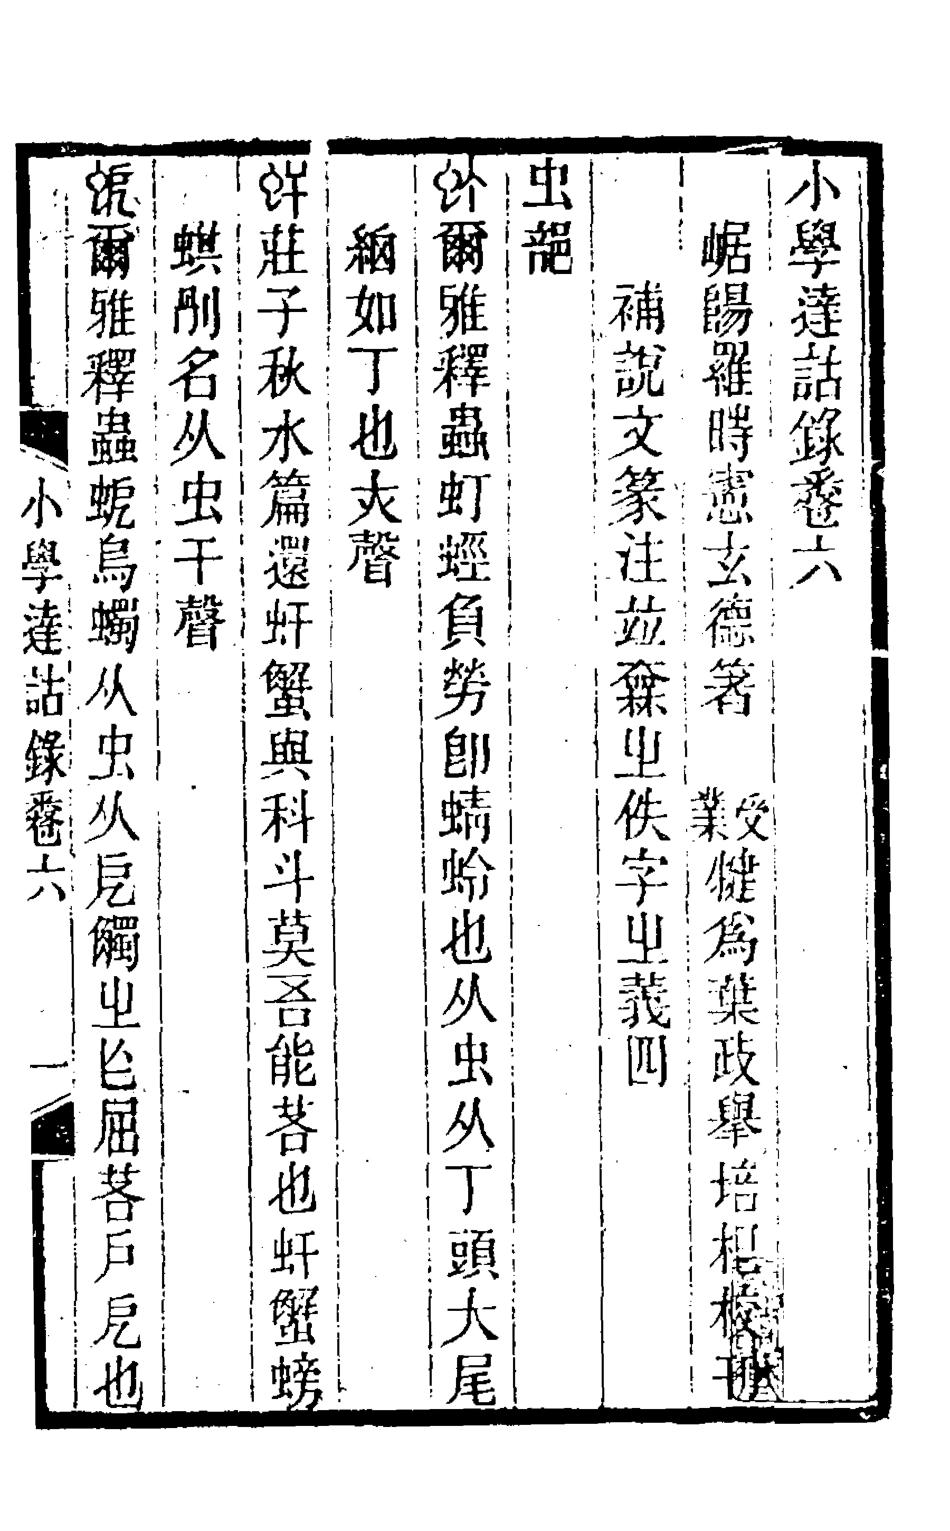 小學達詁錄卷六
崌陽羅時憲玄德箸 受業犍為葉政舉培根校刊
補說文篆注並㚇㞢佚字㞢義四
虫部
虰爾雅釋蟲虰蛵負勞即蜻蛉也从虫从丁頭大尾
細如丁也亣聲
虷莊子秋水篇還虷蟹與科斗莫吾能若也虷蟹螃
蜞別名从虫干聲
蚅爾雅釋蟲蚅烏蠋从虫从戹蠋㞢色屈若戶戹也
小學達詁錄卷六 一